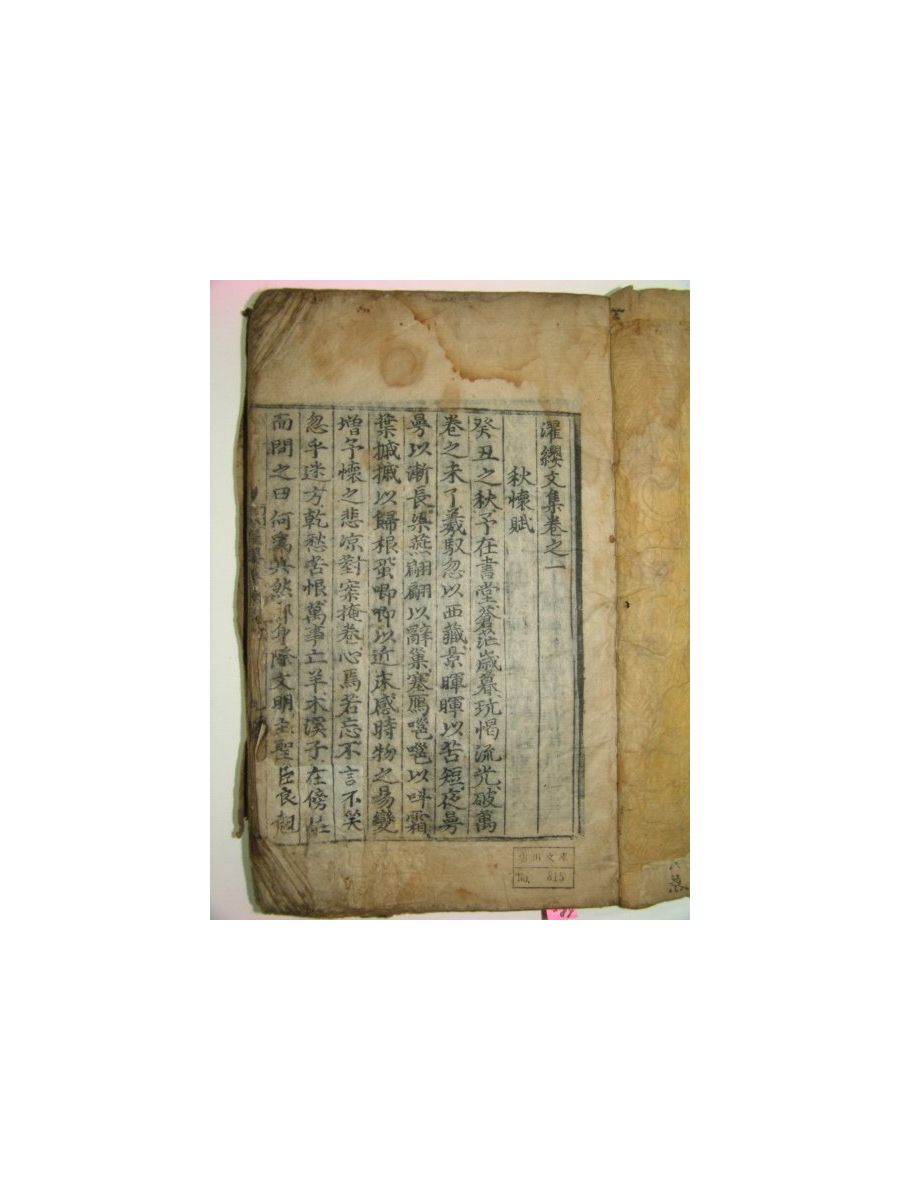 濯纓文集卷之一
秋懷賦
癸丑之秋予在書堂蒼茫歲暮玩愒流光破萬
卷之未了羲馭忽以西藏景暉暉以苦短夜曼
曼以漸長梁燕翩翩以辭巢塞鴈嗈嗈以叫霜
葉摵摵以歸根蛩喞喞以近床感時物之易變
增予懷之悲凉對案掩卷心焉若忘不言不笑
忽乎迷方乾愁苦恨萬事亡羊木溪子在傍
而問之曰何爲其然 文明主聖臣良
文庫
No. 815